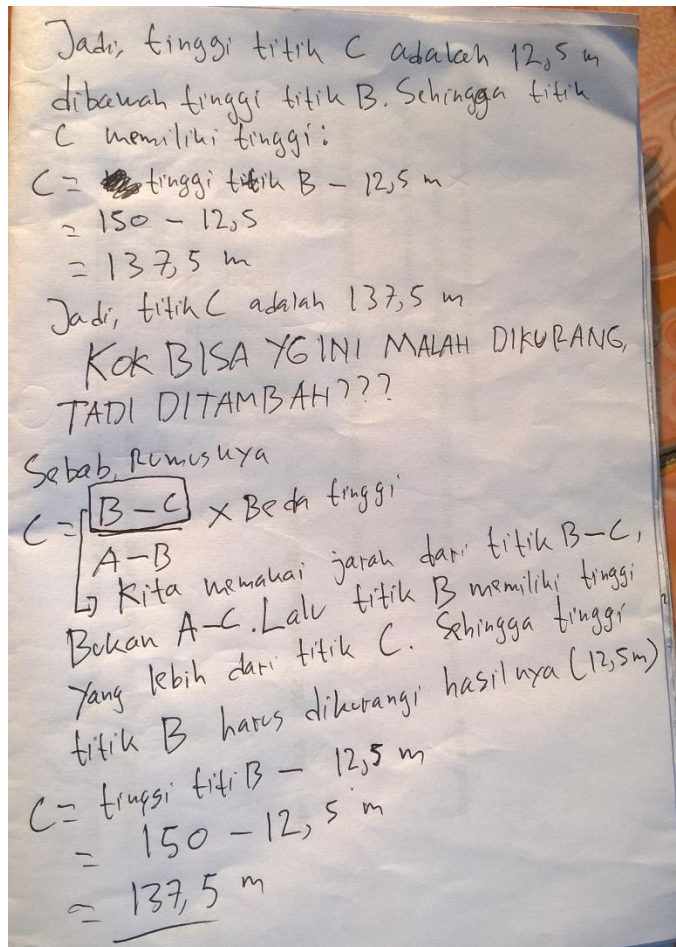 Jadi, tinggi titik C adalah 12,5 m
dibawah tinggi titik B. Sehingga titik
C memiliki tinggi:
C = tinggi titik B - 12,5 m
= 150 - 12,5
= 137,5 m
Jadi, titik C adalah 137,5 m
KOK BISA YG INI MALAH DIKURANG,
TADI DITAMBAH???
Sebab, Rumusnya
C = B - C x Beda tinggi
A - B
↳ Kita memakai jarak dari titik B-C,
Bukan A-C. Lalu titik B memiliki tinggi
yang lebih dari titik C. Sehingga tinggi
titik B harus dikurangi hasilnya (12,5m)
C = tinggi titi B - 12,5 m
= 150 - 12,5 m
= 137,5 m